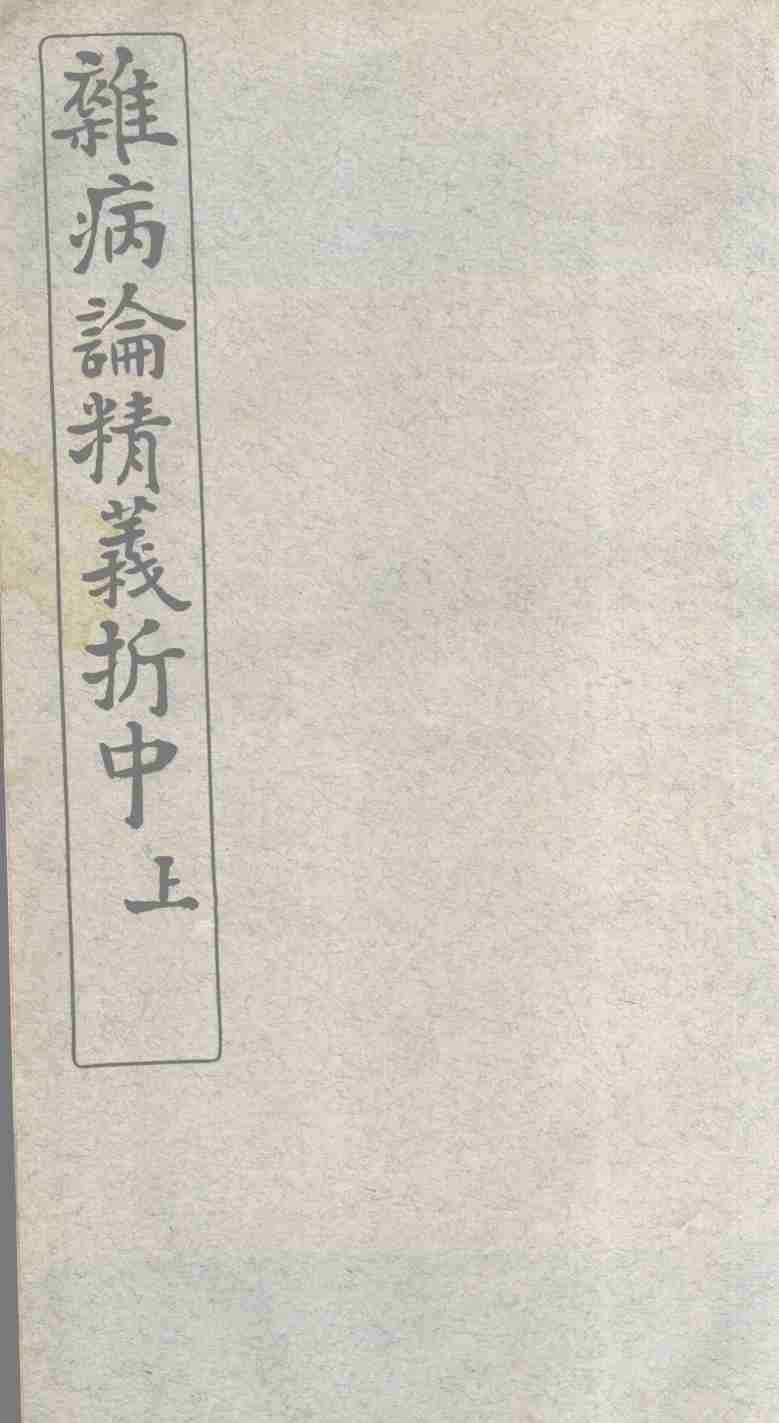 雜病論精義折中 上